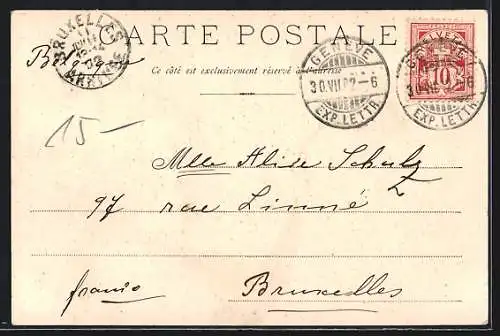 CARTE POSTALE
Ce côté est exclusivement réservé à l'adresse
BRUXELLES
ARRIVÉE
Belgique
GENÈVE
30.VII.02-6
EXP. LETTR.
GENÈVE
-6
EXP. LETTR.
HELVETIA
10
15-
Mlle Alise Schulz
97 rue Linné
franco
Bruxelles